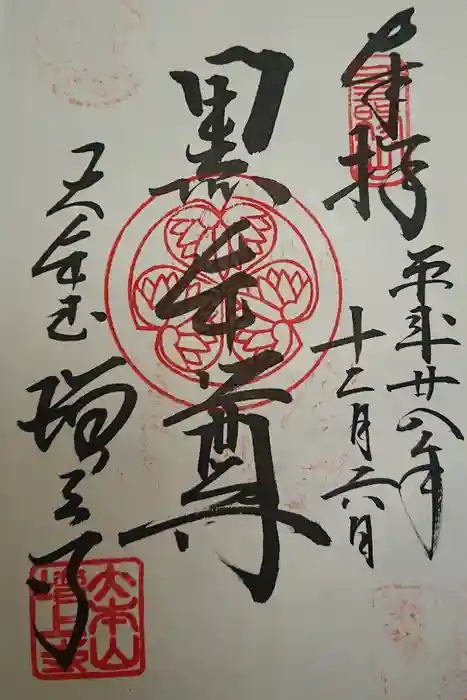 奉拝
平成廿八年
十二月六日
黒本尊
大本山
増上寺
三縁山
大本山
増上寺